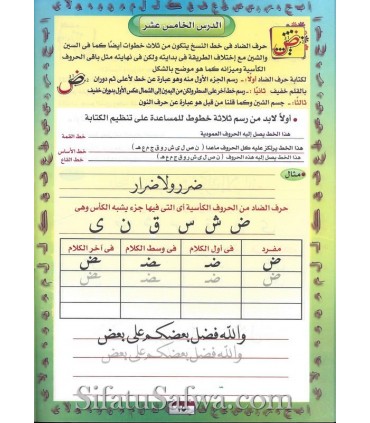 الدرس الخامس عشر
ض
حرف الضاد فى خط النسخ يتكون من ثلاث خطوات أيضًا كما فى السين
والشين مع إختلاف الطريقة فى بدايته ولكن فى نهايته مثل باقى الحروف
الكأسية وميزانه كما هو موضح بالشكل
لكتابة حرف الضاد أولاً: رسم الجزء الأول منه وهو عبارة عن خط لأعلى ثم دوران
بالقلم خفيف ثانيًا: رسم خط آخر على السطر ولكن من اليمين إلى الشمال عكس الأول بدون خفيف
ثالثًا: جسم الشين وكما قلنا من قبل هو عبارة عن حرف النون
ض
أولاً لابد من رسم ثلاثة خطوط للمساعدة على تنظيم الكتابة
هذا الخط يصل إليه الحروف العمودية
خط القمة
هذا الخط يرتكز عليه كل الحروف ماعدا ( ن ص ل ى ش ر و ق ح م ع هـ )
خط الأساس
هذا الخط يصل إليه هذه الحروف ( ن ص ل ى ش ر و ق ح م ع هـ )
خط القاع
مثال
ضرر ولا ضرار
حرف الضاد من الحروف الكأسية أى التى فيها جزء يشبه الكأس وهى
ض ش س ق ن ى
مفرد فى أول الكلام فى وسط الكلام فى آخر الكلام
ض ضـ ـضـ ـض
ض ضـ ـضـ ـض
والله فضل بعضكم على بعض
والله فضل بعضكم على بعض
www.SifatuSafwa.com